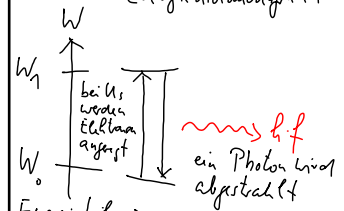 W
W₁
bei Us
werden
Elektronen
angeregt
h·f
ein Photon wird
abgestrahlt
W₀